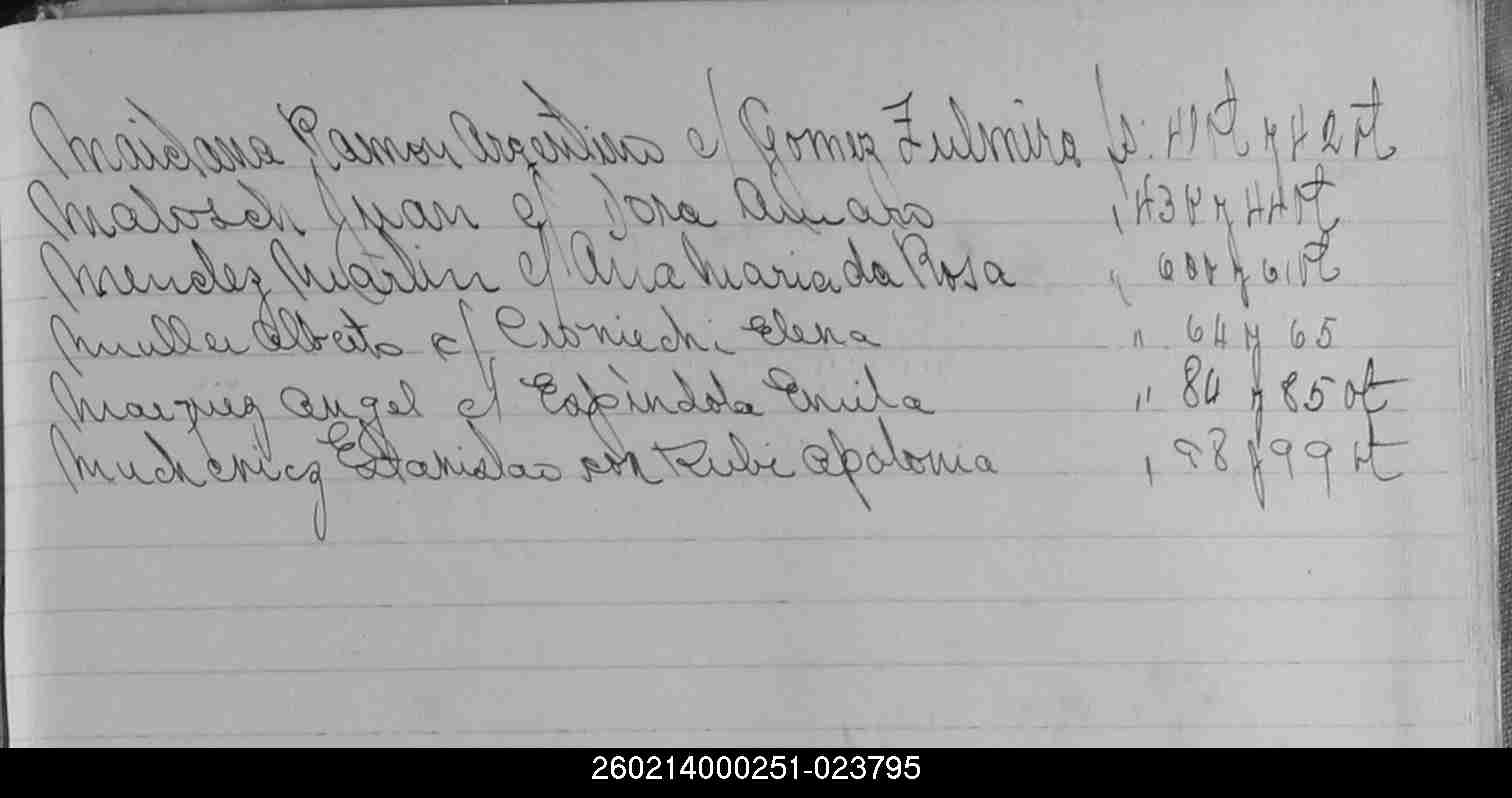 Maidana Ramon Argentino c/ Gomez Zulmira fs: 41 vt y 42 vt
Matosch Juan c/ Dora Amaro " 43 vt y 44 vt
Mendez Martin c/ Ana Maria da Rosa " 60 vt y 61 vt
Muller Alberto c/ Elena " 64 y 65
Marquez Angel c/ Espindola Emila " 84 y 85 vt
Estanislao con Apolonia " 98 y 99 vt
260214000251-023795